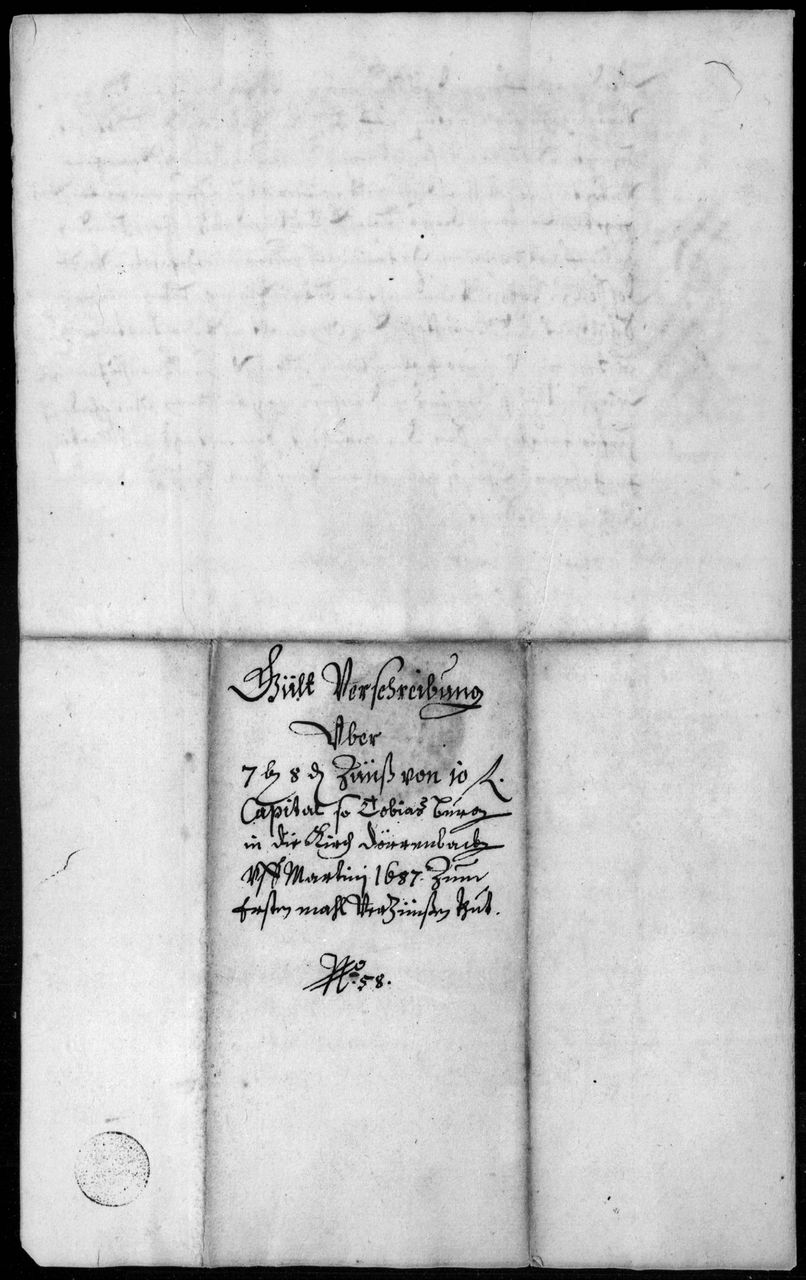 Gült Verschreibung
Vber
7 bz 8 d Zinß von 10 fl.
Capital so Tobias burg
in die Kirch dörrenbach
Vff Martinj 1687. Zum
Ersten mahl Verzinßen thut.
No. 58.